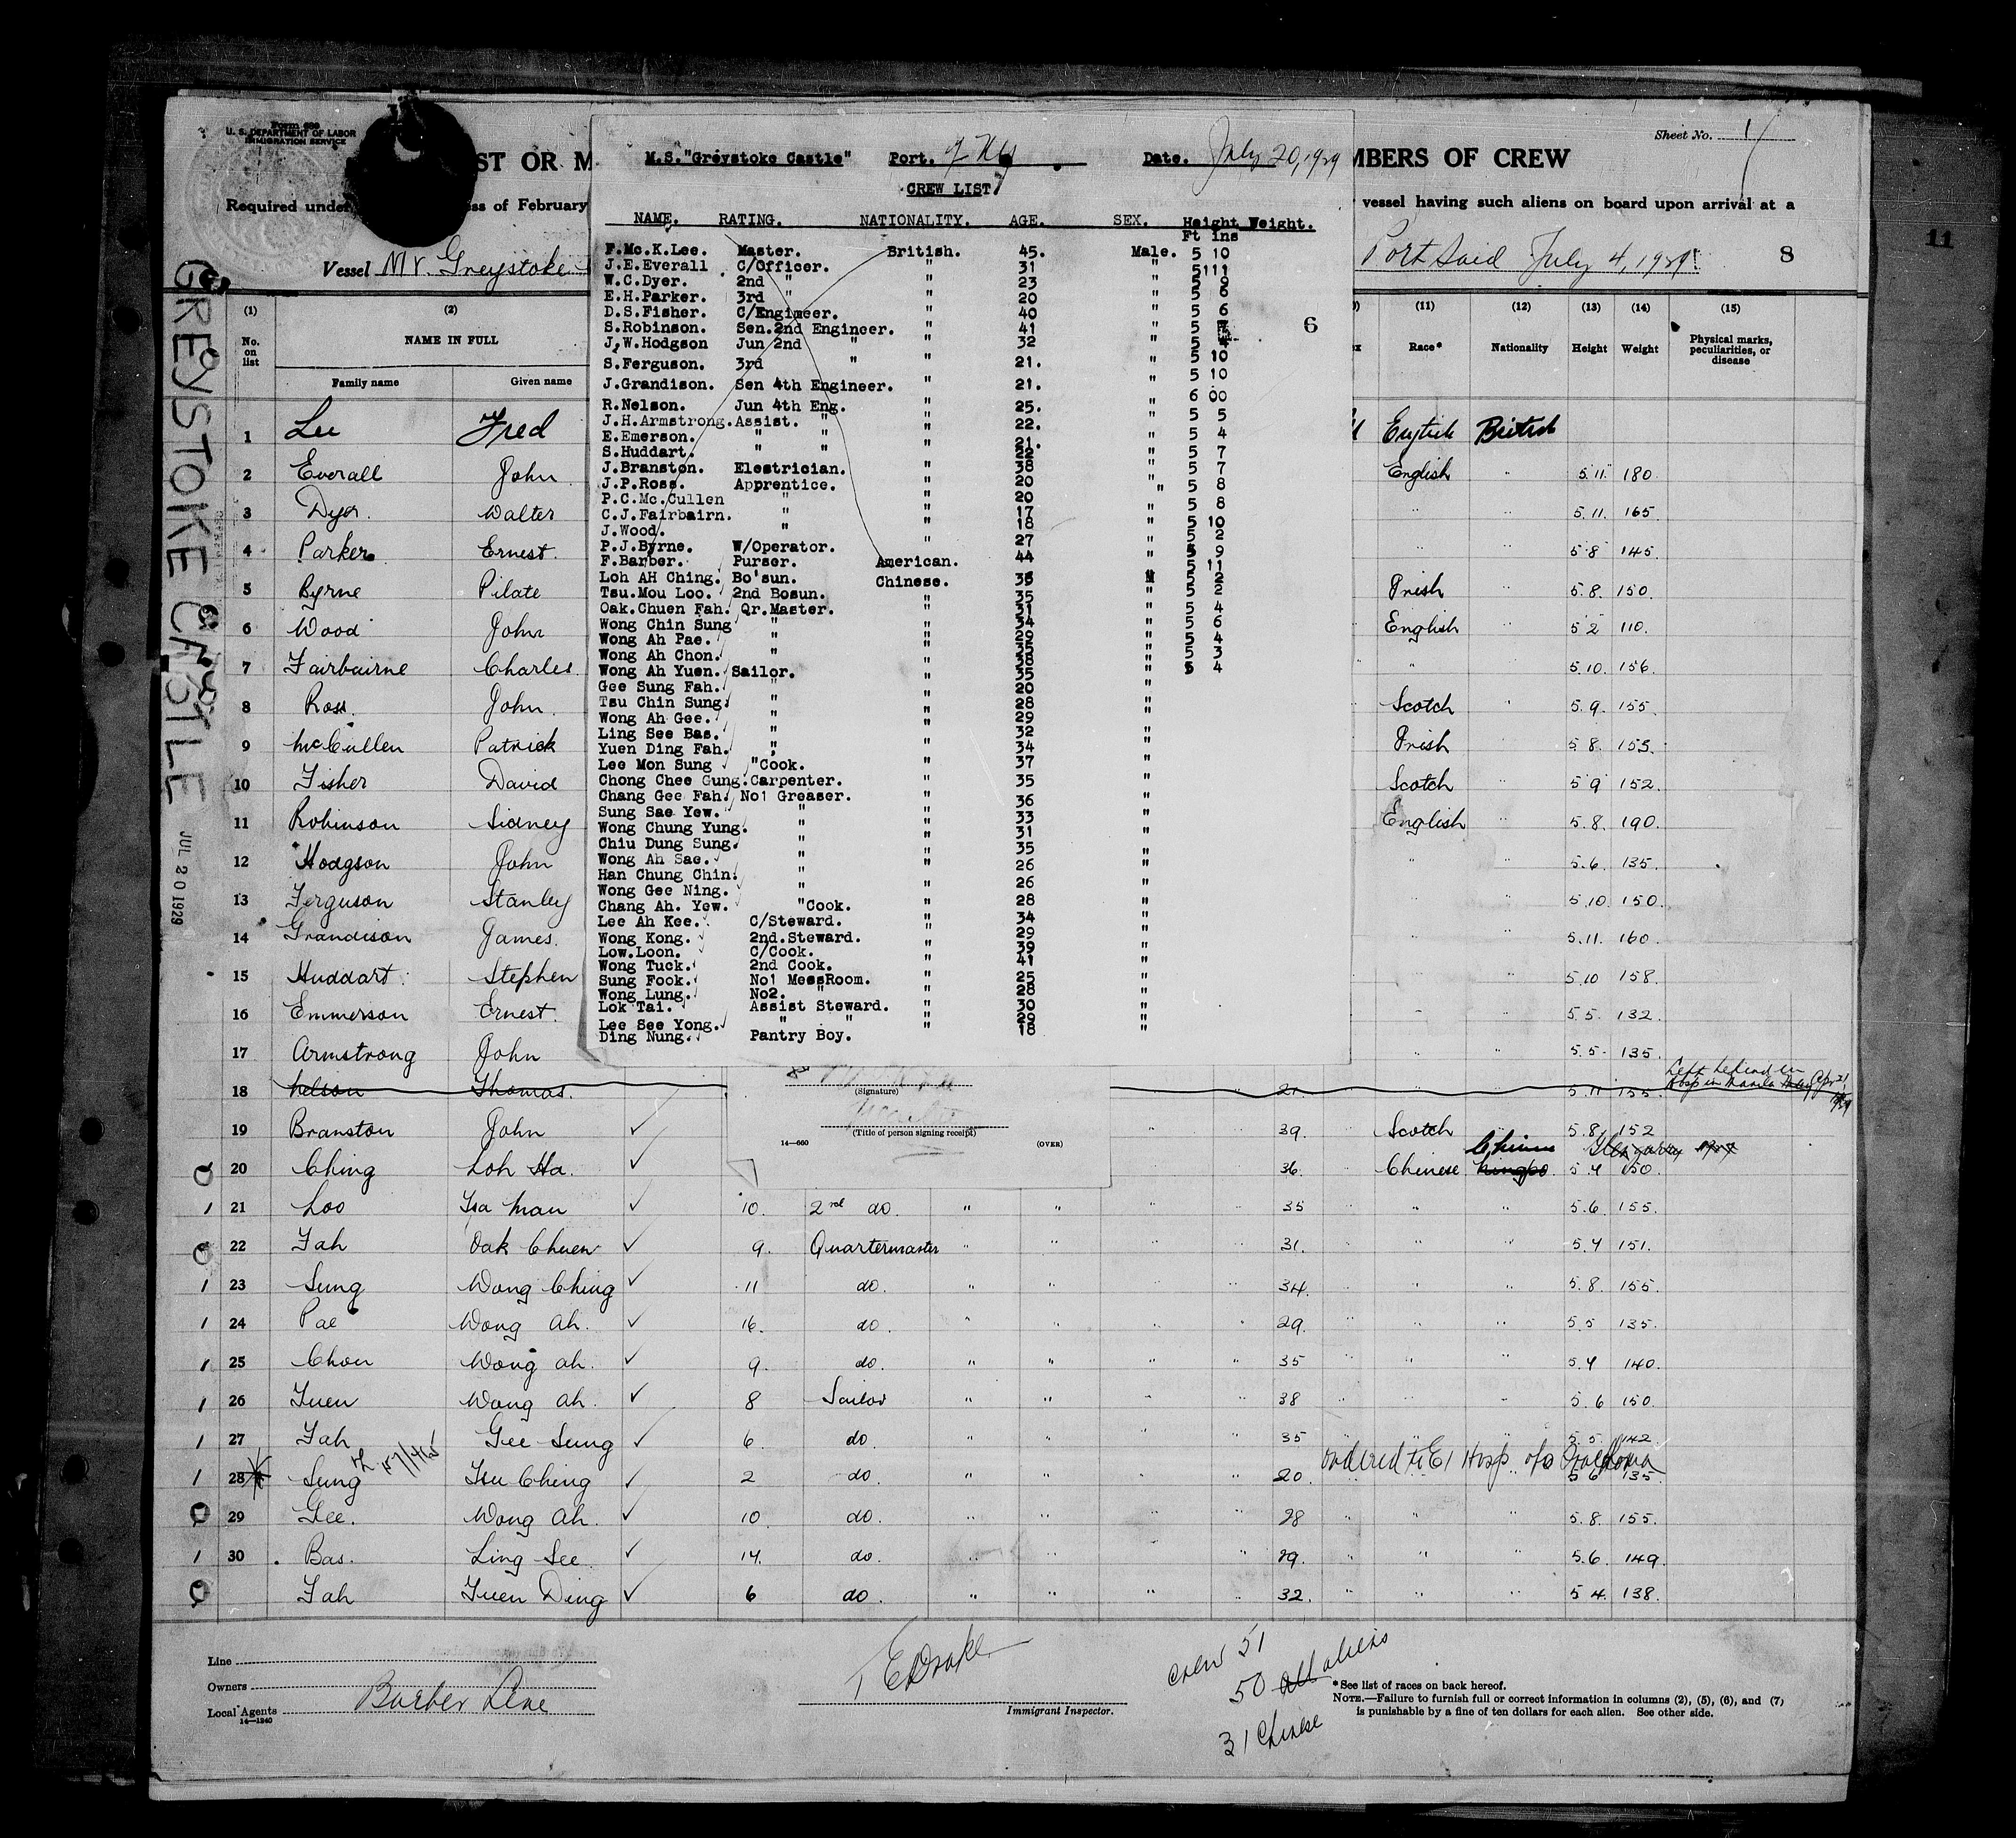 Form 680
U. S. DEPARTMENT OF LABOR
IMMIGRATION SERVICE
Sheet No. 1
ST OR M
MBERS OF CREW
Required under
ss of February
vessel having such aliens on board upon arrival at a
Vessel MV. Greystoke
Port Said July 4, 1929
8
11
6
GREYSTOKE CASTLE
JUL 20 1929
M.S."Greystoke Castle" Port. NY Date. July 20, 1929
CREW LIST
NAME. RATING. NATIONALITY. AGE. SEX. Height Weight.
Ft Ins
F.Mc.K.Lee. Master. British. 45. Male. 5 10
J.E.Everall C/Officer. " 31 " 5 11
W.C.Dyer. 2nd " " 23 " 5 9
E.H.Parker. 3rd " " 20 " 5 6
D.S.Fisher. C/Engineer. " 40 " 5 6
S.Robinson. Sen.2nd Engineer. " 41 " 5
J.W.Hodgson Jun 2nd " " 32 " 5 4
S.Ferguson. 3rd " " 21. " 5 10
J.Grandison. Sen 4th Engineer. " 21. " 5 10
R.Nelson. Jun 4th Eng. " 25. " 6 00
J.H.Armstrong. Assist. " " 22. " 5 5
E.Emerson. " " " 21. " 5 4
S.Huddart. " " " 22 " 5 7
J.Branston. Electrician. " 38 " 5 7
J.P.Ross. Apprentice. " 20 " 5 8
P.C.Mc.Cullen " " 20 " 5 8
C.J.Fairbairn. " " 17 " 5 10
J.Wood. " " 18 " 5 2
P.J.Byrne. W/Operator. " 27 " 5 9
F.Barber. Purser. American. 44 " 5 11
Loh AH Ching. Bo'sun. Chinese. 35 " 5 2
Tsu.Mou Loo. 2nd Bosun. " 35 " 5 2
Oak.Chuen Fah. Qr.Master. " 31 " 5 4
Wong Chin Sung " " 34 " 5 6
Wong Ah Pae. " " 29 " 5 4
Wong Ah Chon. " " 35 " 5 3
Wong Ah Yuen. Sailor. " 38 " 5 4
Gee Sung Fah. " " 35 "
Tsu Chin Sung. " " 20 "
Wong Ah Gee. " " 28 "
Ling See Bas. " " 29 "
Yuen Ding Fah. " " 32 "
Lee Mon Sung "Cook. " 34 "
Chong Chee Gung. Carpenter. " 37 "
Chang Gee Fah. No1 Greaser. " 35 "
Sung Sae Yew. " " 36 "
Wong Chung Yung. " " 33 "
Chiu Dung Sung. " " 31 "
Wong Ah Sae. " " 35 "
Han Chung Chin. " " 26 "
Wong Gee Ning. " " 26 "
Chang Ah. Yew. "Cook. " 28 "
Lee Ah Kee. C/Steward. " 34 "
Wong Kong. 2nd.Steward. " 29 "
Low.Loon. C/Cook. " 39 "
Wong Tuck. 2nd Cook. " 41 "
Sung Fook. No1 MessRoom. " 25 "
Wong Lung. No2. " " 28 "
Lok Tai. Assist Steward. " 30 "
Lee See Yong. " " " 29 "
Ding Nung. Pantry Boy. " 18 "
(1) (2) (11) (12) (13) (14) (15)
No. on list NAME IN FULL Race* Nationality Height Weight Physical marks, peculiarities, or disease
Family name Given name
1 Lee Fred English British
2 Everall John English " 5.11. 180.
3 Dyer. Walter " " 5.11. 165.
4 Parker Ernest. " " 5 8 145.
5 Byrne Pilate Irish " 5.8. 150.
6 Wood John English " 5 2 110.
7 Fairbairne Charles " " 5.10. 156.
8 Ross. John. Scotch " 5.9. 155.
9 McCullen Patrick Irish " 5 8. 153.
10 Fisher David Scotch " 5 9 152.
11 Robinson Sidney English " 5.8. 190.
12 Hodgson John " " 5.6. 135.
13 Ferguson Stanley " " 5.10. 150.
14 Grandison James. " " 5.11. 160.
15 Huddart. Stephen " " 5.10 158.
16 Emmerson Ernest. " " 5.5. 132.
17 Armstrong John " " 5.5. 135.
18 Nelson Thomas. 21. " " 5.11 155. Left behind in Hosp in Manila Apr 21 1929
(Signature)
(Title of person signing receipt)
14—660 (OVER)
19 Branston John ✓ 39. Scotch " 5.8. 152
20 Ching Loh Ha. ✓ 36. Chinese Ningpo Chinese 5 4 150.
1 21 Loo Tsa Mau ✓ 10. 2nd do. " " " 35 " " " 5.6. 155.
22 Fah Oak Chuen ✓ 9. Quartermaster " " " 31. " " " 5.4 151.
1 23 Sung Wong Ching ✓ 11 do. " " " 34. " " " 5.8. 155.
1 24 Pae Wong Ah. ✓ 16. do. " " " 29. " " " 5.5 135.
1 25 Chon Wong Ah. ✓ 9. do. " " " 35 " " " 5.4 140.
1 26 Yuen Wong Ah. ✓ 8 Sailor " " " 38 " " " 5.6 150.
1 27 Fah Gee Sung ✓ 6. do. " " " 35 " " " 5.5. 142
57/465
ordered to EI Hosp
1 28 Sung Tsu Ching ✓ 2 do. " " " 20. " " " 5 6 135
29 Gee. Wong Ah. ✓ 10. do. " " " 28 " " " 5.8. 155.
1 30 Bas. Ling See ✓ 14. do. " " " 29. " " " 5.6. 149.
Fah Yuen Ding ✓ 6 do. " " " 32. " " " 5 4. 138.
Line
Owners
Local Agents Barber Line
14—1240
T E Drake
Immigrant Inspector.
Crew 51
50 all aliens
31 Chinese
*See list of races on back hereof.
NOTE.—Failure to furnish full or correct information in columns (2), (5), (6), and (7)
is punishable by a fine of ten dollars for each alien. See other side.